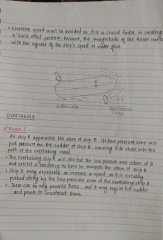 • Excessive speed must be avoided as it is a crucial factor in creating
a bank effect problem because the magnitude of the forces varies
with the square of the ship's speed in water feed.
OVERTAKING
PHASE 1
As ship A approaches the stern of ship B, its bow pressure zone will
put pressure on the rudder of ship B, causing it to sheer into the
path of the overtaking vessel.
• The overtaking ship will also feel the low pressure area astern of B
and exhibit a tendency to turn in towards the stern of ship B
• Ship A may experience an increase in speed, as it is virtually
sucked along by the low pressure area of the overtaking ship B
• These can be very powerful forces, and it may require full rudder
and power to counteract them.